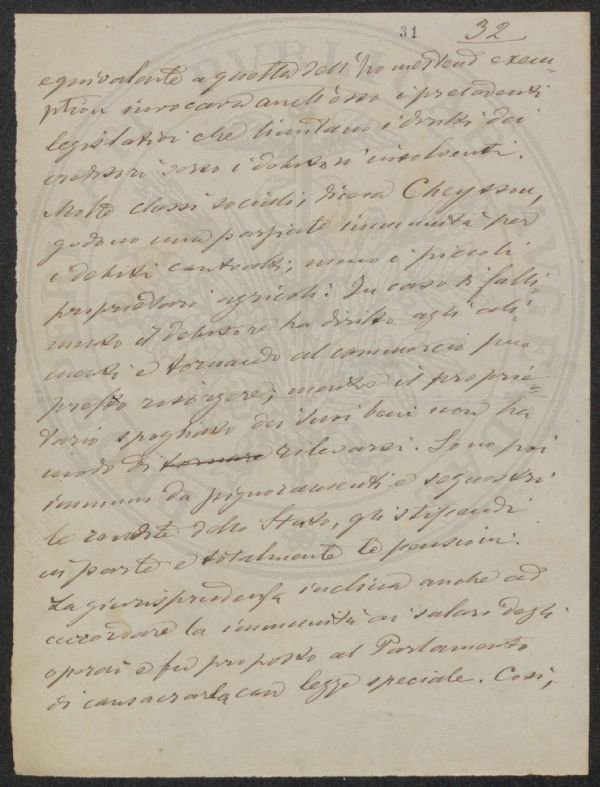 31 32
equivalente a quella dell'homestead exem-
ption invocava anch'esso i precedenti
legislativi che limitano i diritti dei
creditori verso i debitori insolventi.
Molte classi sociali, diceva Cheysson,
godono una parziale immunità per
i debiti contratti, meno i piccoli
proprietari agricoli. In caso di falli-
mento il debitore ha diritto agli ali-
menti e tornando al commercio può
presto risorgere; mentre il proprie-
tario spogliato dei suoi beni non ha
modo di tornare rilevarsi. Sono poi
immuni da pignoramenti e sequestri
le rendite dello Stato, gli stipendi
in parte e totalmente le pensioni.
La giurisprudenza inclina anche ad
accordare la immunità ai salari degli
operai e fu proposto al Parlamento
di consacrarla con legge speciale. Così,